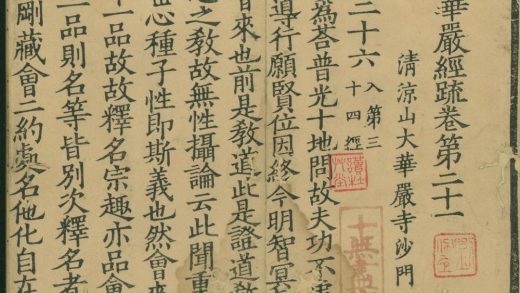 華嚴經疏卷第二十一
清涼山大華嚴寺沙門
二十六 入第三
十四經
為荅普光十地問故夫功不
導行願賢位因終今明智冥
來也前是教道此是證道教
之教故無性攝論云此聞重
心種子性即斯義也然會來
十一品故故釋名宗趣亦品會
一品則名等皆別次釋名者
剛藏會二約處名他化自在